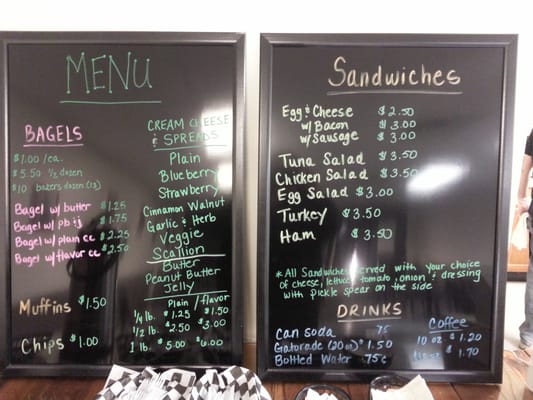 MENU
BAGELS
$1.00/ea.
$5.50 1/2 dozen
$10 bakers dozen (13)
Bagel w/ butter $1.25
Bagel w/ pb&j $1.75
Bagel w/ plain cc $2.25
Bagel w/ flavor cc $2.50
Muffins $1.50
Chips $1.00
CREAM CHEESE
& SPREADS
Plain
Blueberry
Strawberry
Cinnamon Walnut
Garlic & Herb
Veggie
Scallion
Butter
Peanut Butter
Jelly
Plain / flavor
1/4 lb. $1.25 $1.50
1/2 lb. $2.50 $3.00
1 lb. $5.00 $6.00
Sandwiches
Egg & Cheese $2.50
w/ Bacon $3.00
w/ Sausage $3.00
Tuna Salad $3.50
Chicken Salad $3.50
Egg Salad $3.00
Turkey $3.50
Ham $3.50
*All Sandwiches served with your choice
of cheese, lettuce, tomato, onion & dressing
with pickle spear on the side
DRINKS
Can soda .75
Gatorade (20oz) $1.50
Bottled Water .75¢
Coffee
10 oz $1.20
oz $1.70